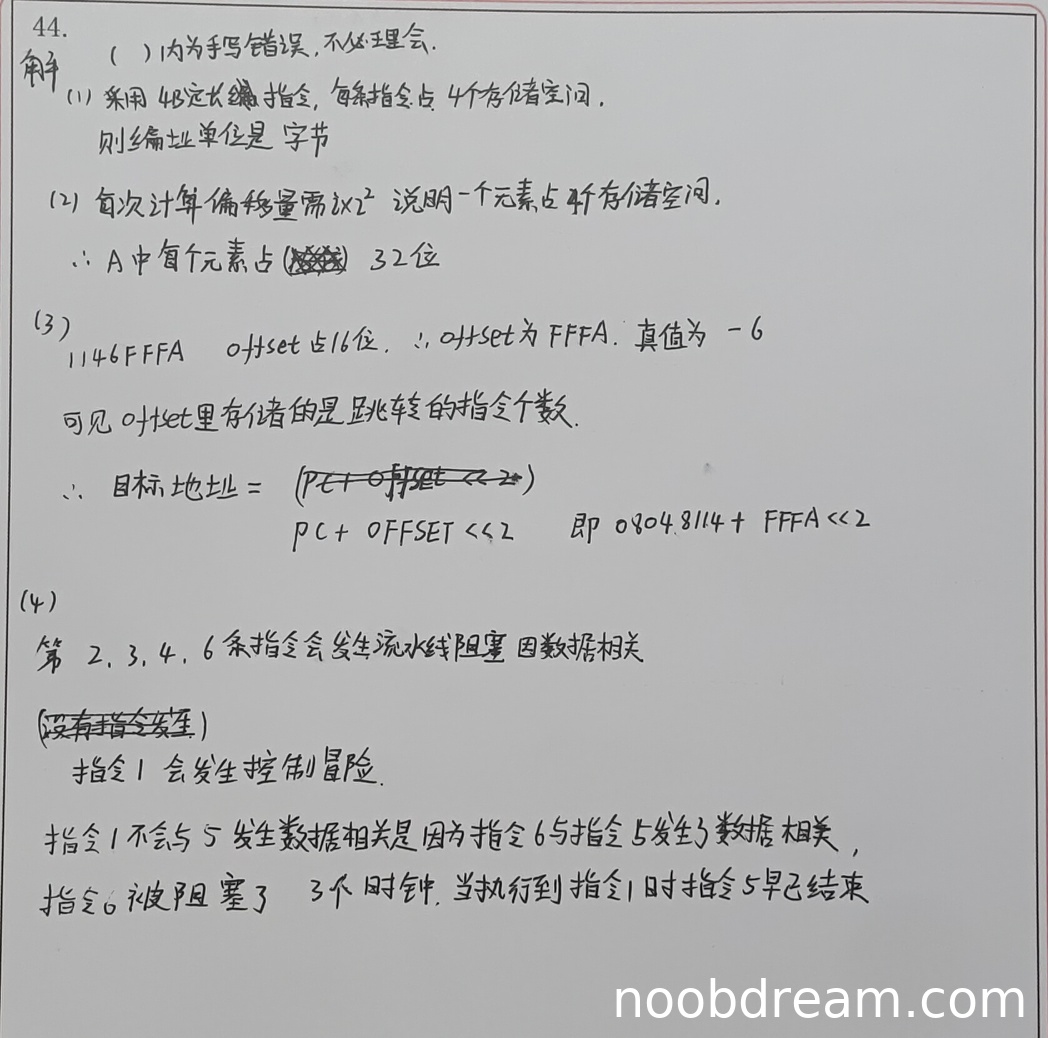 44.
解 ( )内为手写错误,不必理会.
(1) 采用 4B定长指令, 每条指令占 4个存储空间.
则编址单位是 字节
(2) 每次计算偏移量需 i×2² 说明一个元素占4个存储空间.
∴ A中每个元素占 ( ) 32位
(3)
1146FFFA offset占16位. ∴offset为FFFA. 真值为 -6
可见offset里存储的是跳转的指令个数.
∴ 目标地址 = (PC+offset<<2)
PC + OFFSET <<2 即 0804.8114 + FFFA<<2
(4)
第 2. 3. 4. 6 条指令会发生流水线阻塞 因数据相关
(没有指令发生)
指令1 会发生控制冒险.
指令1不会与5发生数据相关是因为指令6与指令5发生了数据相关,
指令6被阻塞了 3个时钟.当执行到指令1时指令5早已结束
noobdream.com